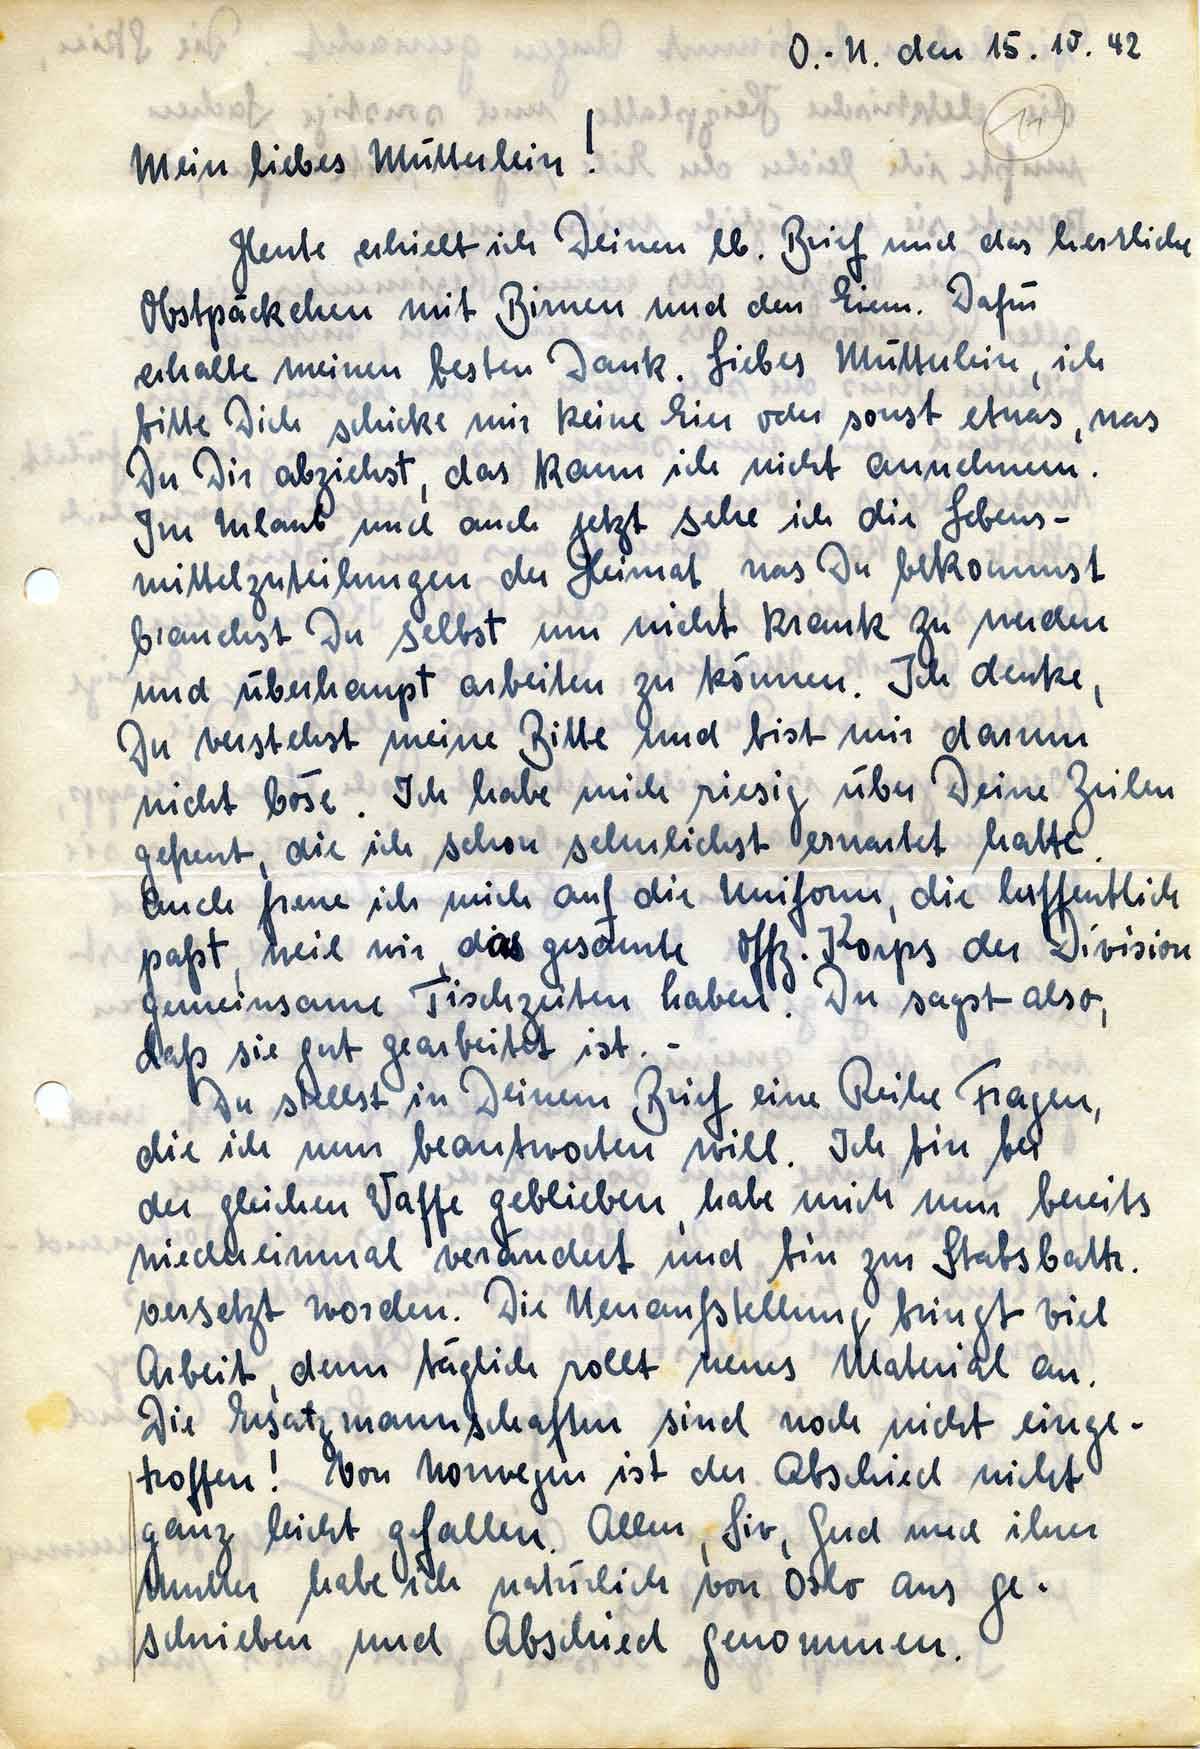 O.-U. den 15.10.42
14
Mein liebes Mütterlein!
Heute erhielt ich Deinen lb. Brief und das herrliche
Obstpäckchen mit Birnen und den Eiern. Dafür
erhalte meinen besten Dank. Liebes Mütterlein, ich
bitte Dich schicke mir keine Eier oder sonst etwas, was
Du Dir abziehst, das kann ich nicht annehmen.
Im Urlaub und auch jetzt sehe ich die Lebens-
mittelzuteilungen der Heimat, was Du bekommst
brauchst Du selbst um nicht krank zu werden
und überhaupt arbeiten zu können. Ich denke,
Du verstehst meine Bitte und bist mir darum
nicht böse. Ich habe mich riesig über Deine Zeilen
gefreut, die ich schon sehnlichst erwartet hatte.
Auch freue ich mich auf die Uniform, die hoffentlich
paßt, weil wir, das gesamte Offz. Korps der Division
gemeinsame Tischzeiten haben. Du sagst also,
daß sie gut gearbeitet ist. -
Du stellst in Deinem Brief eine Reihe Fragen,
die ich nun beantworten will. Ich bin bei
der gleichen Waffe geblieben, habe mich nun bereits
wiedereinmal verändert und bin zur Stabsbattr.
versetzt worden. Die Neuaufstellung bringt viel
Arbeit, denn täglich rollt neues Material an.
Die Ersatzmannschaften sind noch nicht einge-
troffen! Von Norwegen ist der Abschied nicht
ganz leicht gefallen. Allen, Liv, Gud und ihrer
Mutter habe ich natürlich von Oslo aus ge-
schrieben und Abschied genommen.